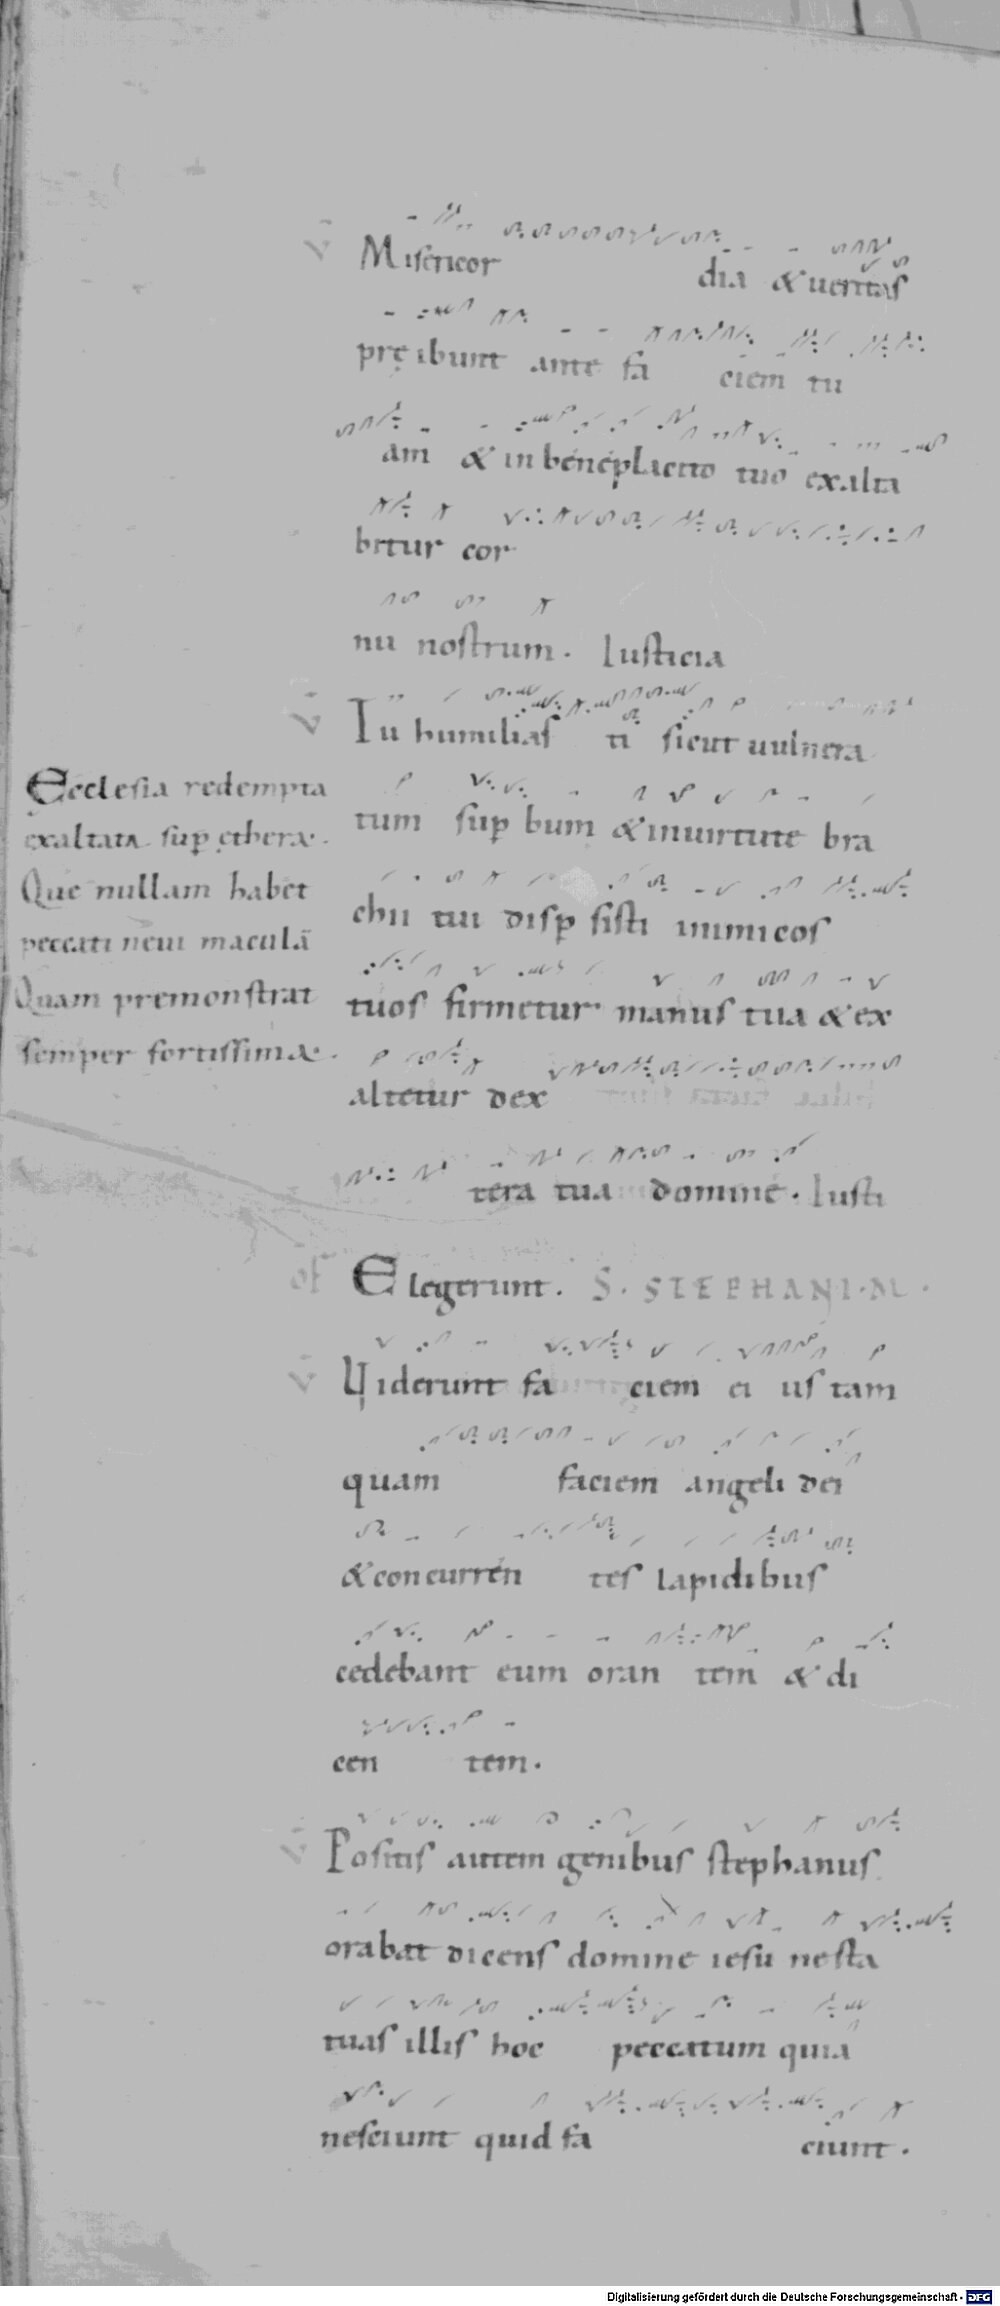 v̄ Misericor dia & ueritas
pręibunt ante fa ciem tu
am̄ & in beneplacito tuo exalta
bitur cor
nu nostrum. Iusticia
v̄ Tu humilias ti sicut uulnera
tum sup̄bum & inuirtute bra
chii tui disp̄ sisti inimicos
tuos firmetur manus tua & ex
altetur dex
tera tua domine. Iusti
Ecclesia redempta
exaltata sup̄ ęthera.
Que nullam habet
peccati neui maculā
Quam premonstrat
semper fortissima.
of Elegerunt. S. STEPHANI. M.
v̄ Uiderunt fa ciem ei us tam
quam faciem angeli dei
& concurren tes lapidibus
cedebant eum oran tem & di
cen tem.
v̄ Positis autem genibus stephanus
orabat dicens domine iesu ne sta
tuas illis hoc peccatum quia
nesciunt quid fa ciunt.
Digitalisierung gefördert durch die Deutsche Forschungsgemeinschaft - DFG